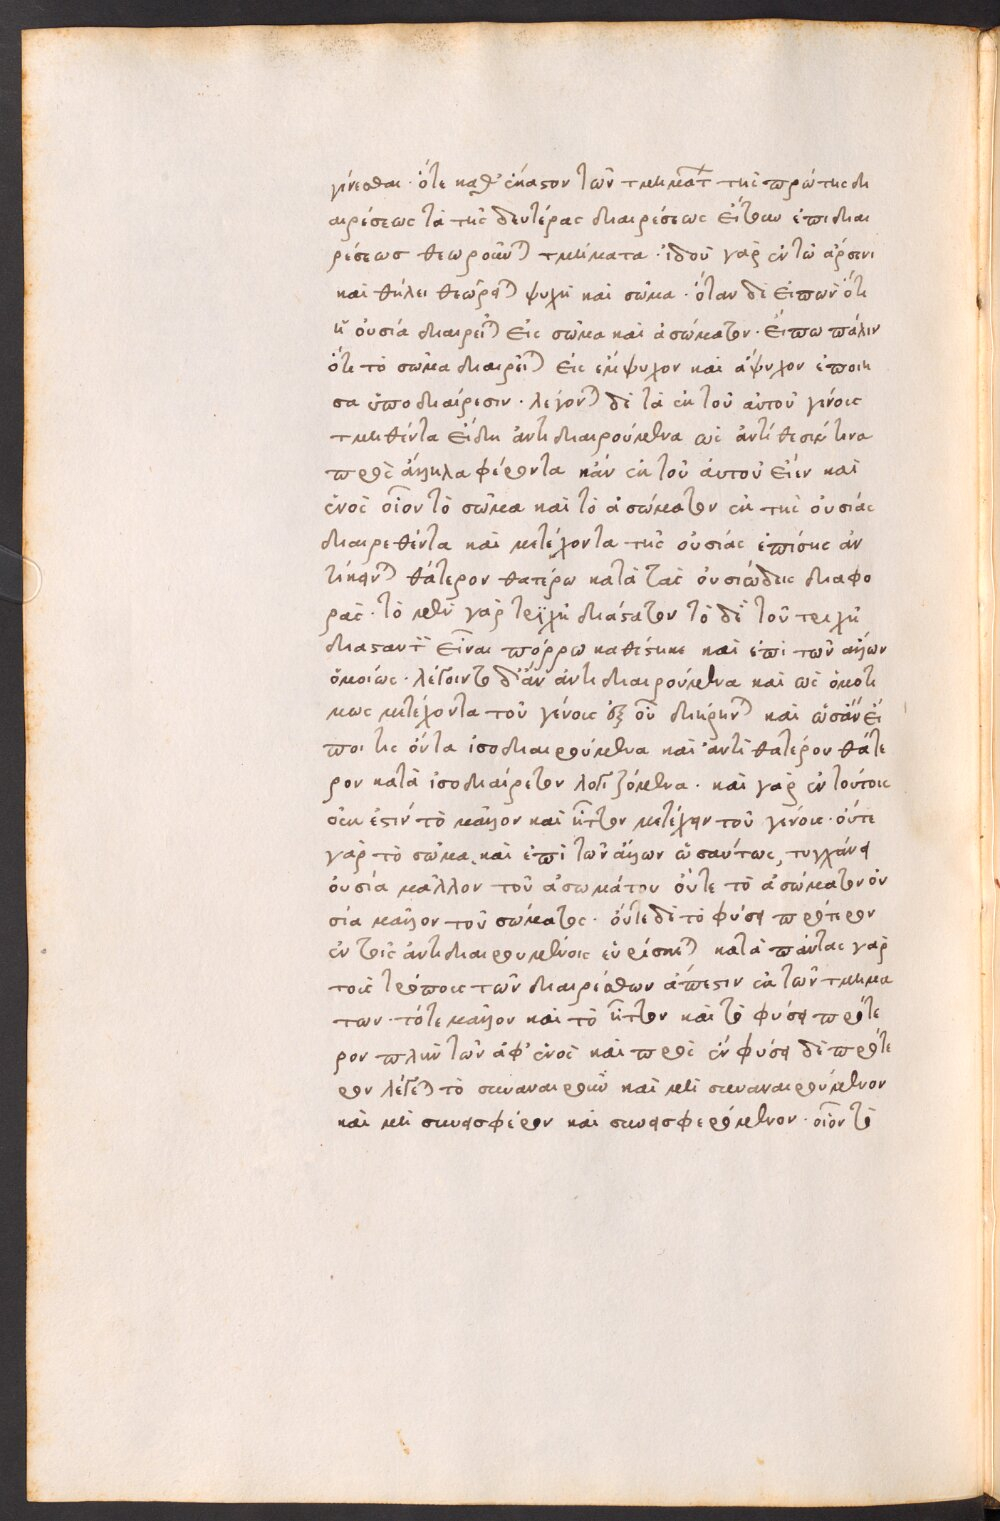 γίνεσθαι· ὅτε καθ' ἕκαστον τῶν τμημάτ τῆς πρώτης δι
αιρέσεως τὰ τῆς δευτέρας διαιρέσεως εἴτουν ἐπιδιαι
ρέσεωσ θεωροῦντ τμήματα· ἰδοὺ γὰρ ἐν τῶ ἄρσενι
καὶ θήλει θεωρεῖτ ψυχὴ καὶ σῶμα· ὅταν δὲ εἰπὼν ὅτι
ἡ οὐσία διαιρεῖτ εἰς σῶμα καὶ ἀσώματον· εἴπω πάλιν
ὅτι τὸ σῶμα διαιρεῖτ εἰς ἔμψυχον καὶ ἄψυχον ἐποίη
σα ὑποδιαίρεσιν· λέγοντ δὲ τὰ ἐκ τοῦ αὐτοῦ γένους
τμηθέντα εἴδη ἀντιδιαιρούμενα ὡς ἀντίθεσίν τινα
πρὸς ἄλληλα φέροντα κἂν ἐκ τοῦ αὐτοῦ εἶεν καὶ
ἑνὸς οἷον τὸ σῶμα καὶ τὸ ἀσώματον ἐκ τῆς οὐσίας
διαιρεθέντα καὶ μετέχοντα τῆς οὐσίας ἐπίσης ἀν
τίκειντ θάτερον θατέρω κατὰ τὰς οὐσιώδεις διαφο
ράς· τὸ μὲν γὰρ τριχῆ διάστατον τὸ δὲ τοῦ τριχῆ
διαστατ εἶναι πόρρω καθέστηκε καὶ ἐπὶ τῶν ἄλλων
ὁμοίως· λέγοιντο δ' ἂν ἀντιδιαιρούμενα καὶ ὡς ὁμοτί
μως μετέχοντα τοῦ γένους ἐξ οὗ διήρηντ καὶ ὡσὰν εἴ
ποι τις ὄντα ἰσοδιαιρούμενα καὶ ἀντὶ θατέρου θάτε
ρον κατὰ ἰσοδιαίρετον λογιζόμενα· καὶ γὰρ ἐν τούτοις
οὐκ ἔστιν τὸ μᾶλλον καὶ ἧττον μετέχειν τοῦ γένους· οὔτε
γὰρ τὸ σῶμα, καὶ ἐπὶ τῶν ἄλλων ὡσαύτως, τυγχάνει
οὐσία μᾶλλον τοῦ ἀσωμάτου οὔτε τὸ ἀσώματον οὐ
σία μᾶλλον τοῦ σώματος· οὔτε δὲ τὸ φύσει πρότερον
ἐν τοῖς ἀντιδιαιρουμένοις εὑρίσκετ κατὰ πάντας γὰρ
τοὺς τρόπους τῶν διαιρέσεων ἄπεστιν ἐκ τῶν τμημά
των· τότε μᾶλλον καὶ τὸ ἧττον καὶ τὸ φύσει πρότε
ρον πλὴν τῶν ἀφ' ἑνὸς καὶ πρὸς ἓν φύσει δὲ πρότε
ρον λέγετ τὸ συναναιροῦν καὶ μὴ συναναιρούμενον
καὶ μὴ συνεισφέρον καὶ συνεισφερόμενον· οἷον τὸ